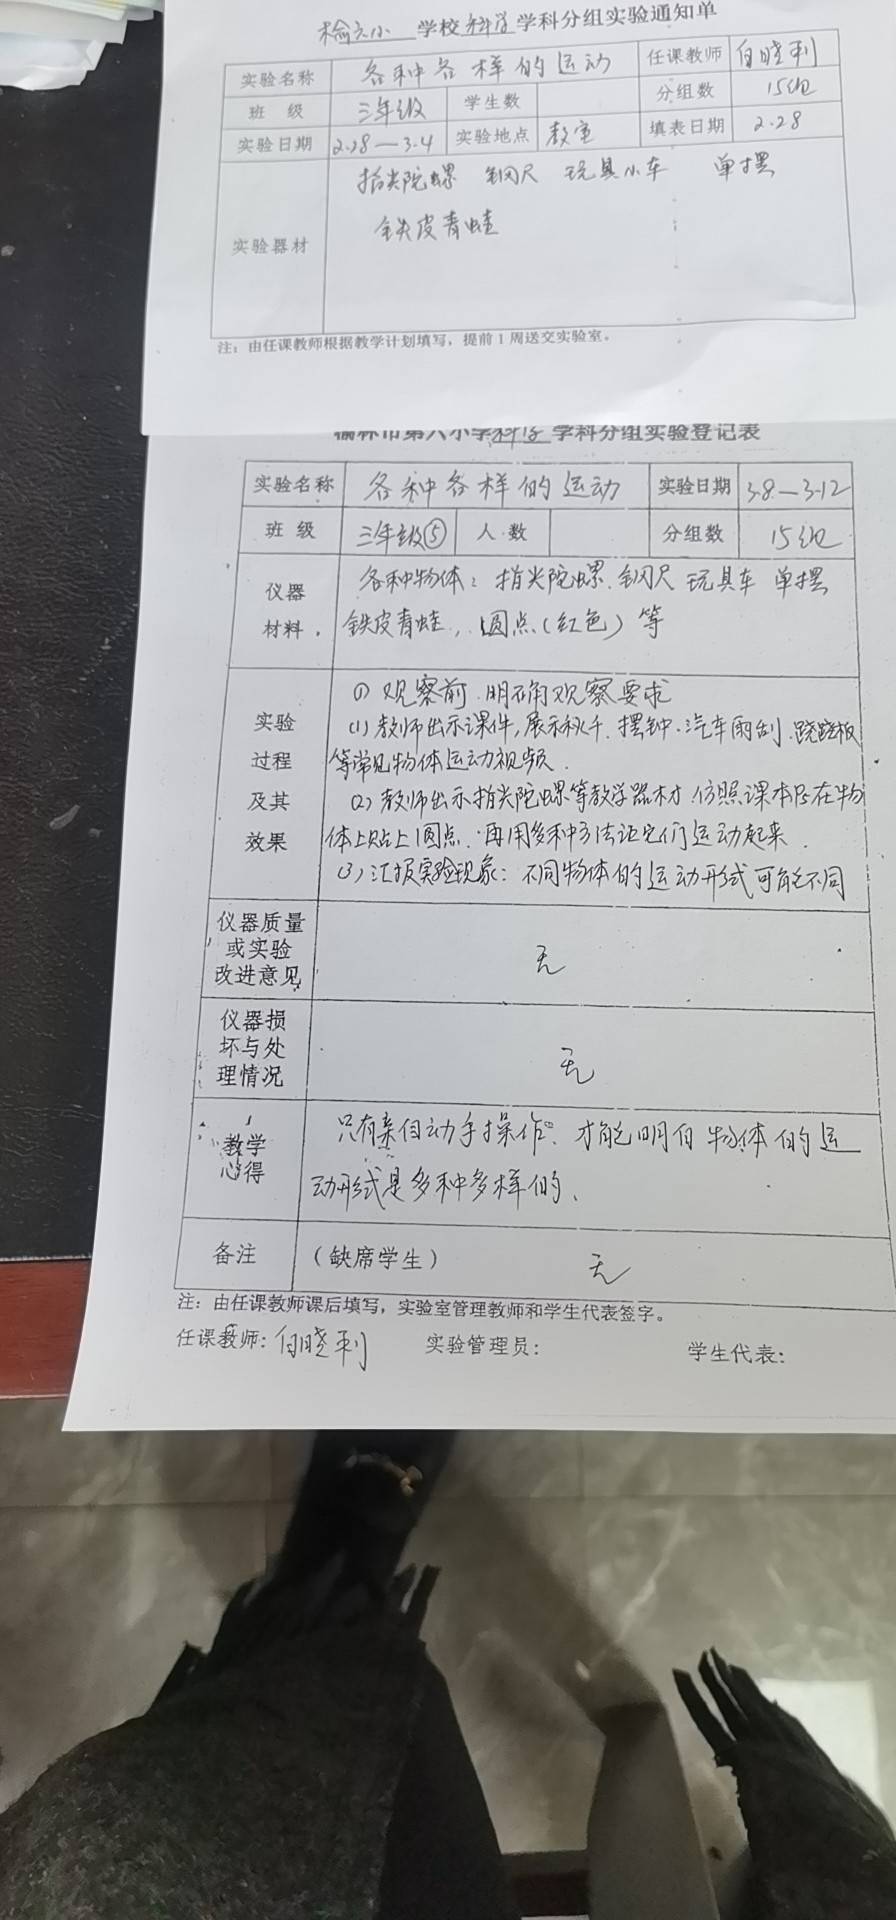 榆六小 学校科学学科分组实验通知单
实验名称 各种各样的运动 任课教师 白晓利
班 级 三年级 学生数 分组数 15组
实验日期 2.28—3.4 实验地点 教室 填表日期 2.28
实验器材 指尖陀螺 钢尺 玩具小车 单摆
铁皮青蛙
注：由任课教师根据教学计划填写，提前1周送交实验室。
榆林市第六小学科学学科分组实验登记表
实验名称 各种各样的运动 实验日期 3.8—3.12
班 级 三年级⑤ 人 数 分组数 15组
仪器 各种物体：指尖陀螺.钢尺 玩具车 单摆
材料 铁皮青蛙，圆点（红色）等
① 观察前.明确观察要求
实验 (1) 教师出示课件,展示秋千.摆钟.汽车雨刮.跷跷板
过程 等常见物体运动视频.
及其 (2) 教师出示指尖陀螺等教学器材.仿照课本P5在物
效果 体上贴上圆点.再用多种方法让它们运动起来.
(3) 汇报实验现象：不同物体的运动形式可能不同
仪器质量
或实验 无
改进意见
仪器损
坏与处 无
理情况
教学 只有亲自动手操作.才能明白物体的运
心得 动形式是多种多样的.
备注 （缺席学生） 无
注：由任课教师课后填写，实验室管理教师和学生代表签字。
任课教师：白晓利 实验管理员： 学生代表：